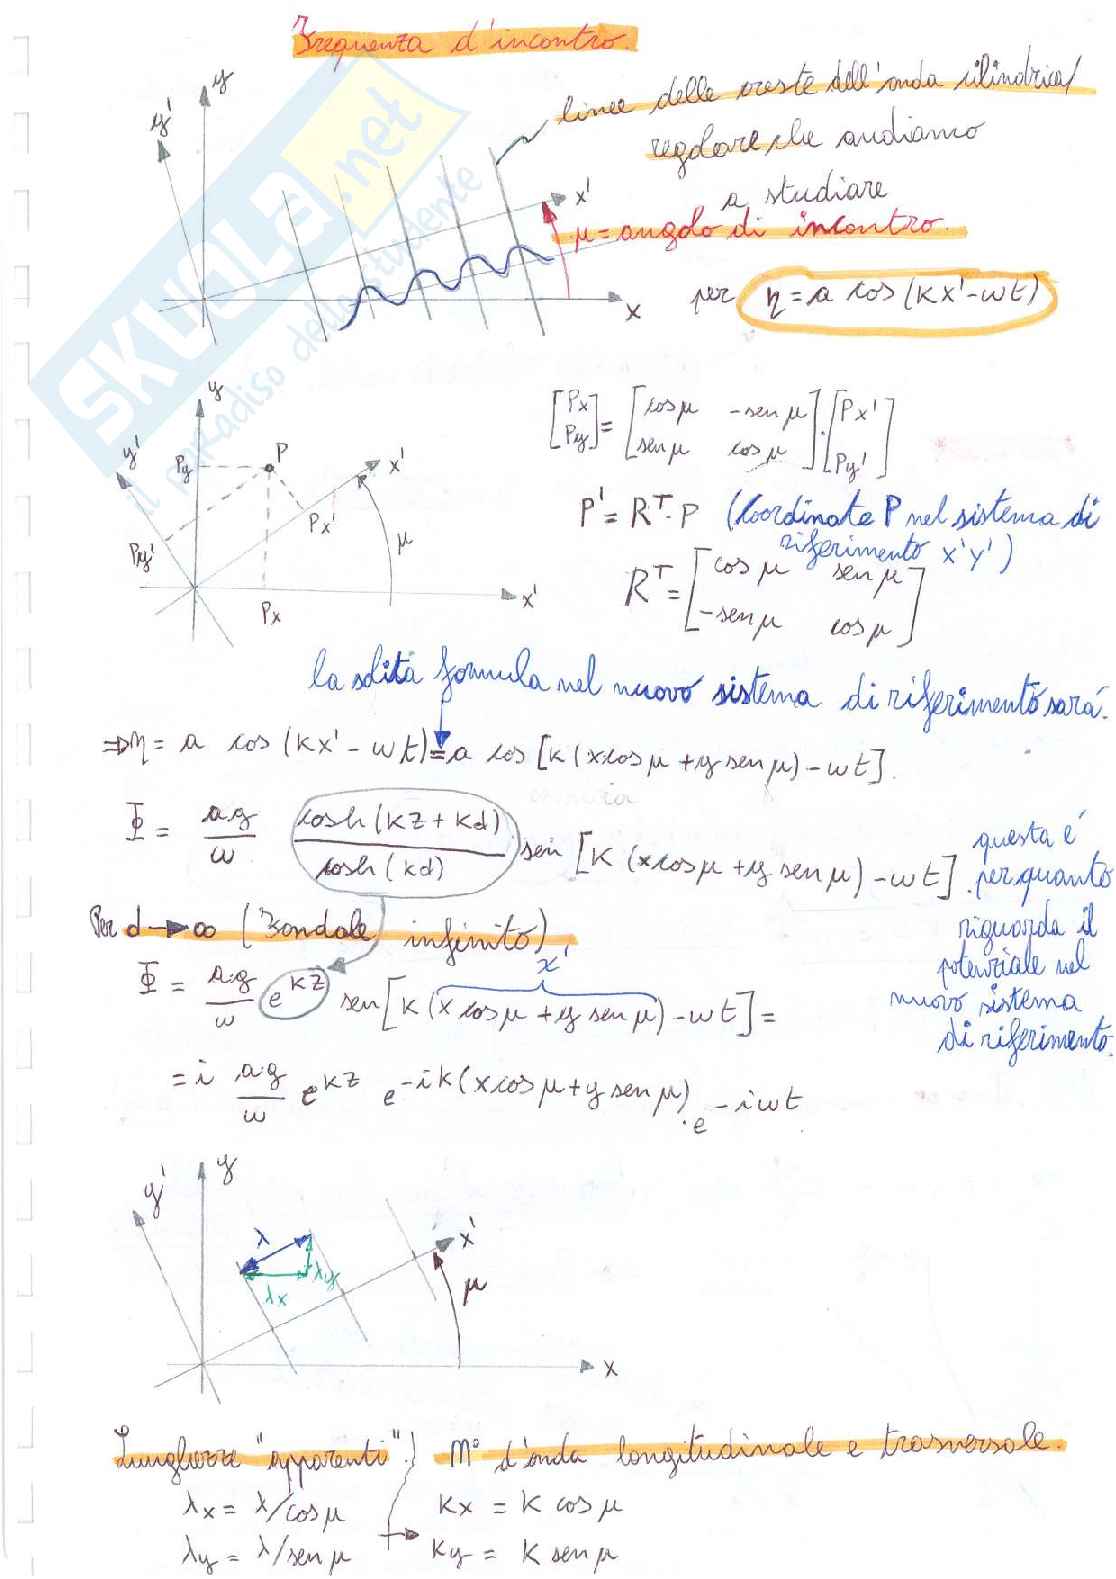 Frequenza d'incontro.
y'
y
linee delle creste dell'onda cilindrica/
regolare che andiamo
a studiare
x'
μ = angolo di incontro.
x
per η = a cos (Kx' - ωt)
SKUOLA.net
il paradiso dello studente
y
y'
Py
P
x'
Px'
Py'
μ
Px
x'
[Px Py] = [cos μ -sen μ
sen μ cos μ] · [Px' Py']
P' = R^T · P (Coordinate P nel sistema di
riferimento x'y')
R^T = [cos μ sen μ
-sen μ cos μ]
la solita formula nel nuovo sistema di riferimento sará:
⇒ η = a cos (Kx' - ωt) = a cos [K (x cos μ + y sen μ) - ωt]
Φ = ag/ω cosh (Kz + Kd)/cosh (Kd) sen [K (x cos μ + y sen μ) - ωt].
questa é
per quanto
riguarda il
potenziale nel
nuovo sistema
di riferimento.
Per d → ∞ (Fondale infinito),
x'
Φ = ag/ω e^Kz sen [K (x cos μ + y sen μ) - ωt] =
= i ag/ω e^Kz e^-iK(x cos μ + y sen μ) · e^-iωt
y'
y
λ
x'
λy
λx
μ
x
Lunghezze "apparenti"
N° d'onda longitudinale e trasversale.
λx = λ/cos μ
Kx = K cos μ
λy = λ/sen μ
→ Ky = K sen μ